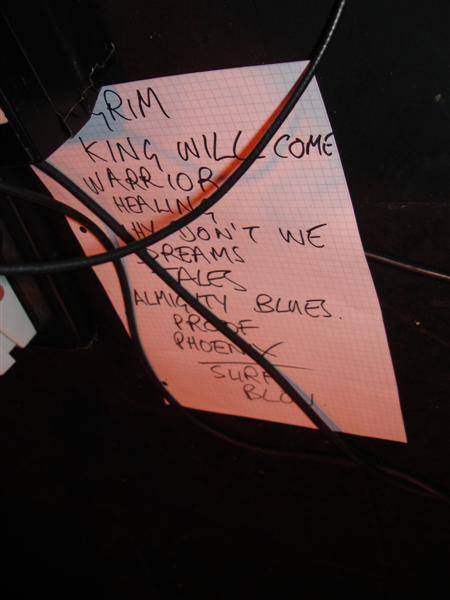 GRIM
KING WILL COME
WARRIOR
HEALING
WHY DON'T WE
DREAMS
TALES
ALMIGHTY BLUES.
PROOF
PHOENIX
SURF
BLOW.